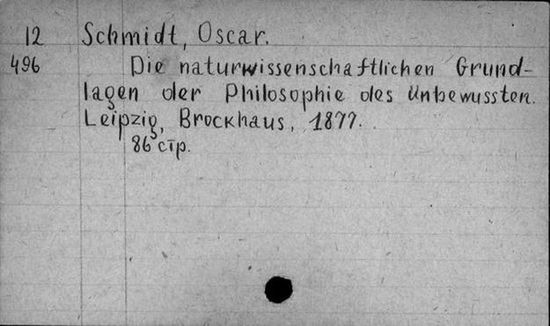 12 Schmidt, Oscar.
496 Die naturwissenschaftlichen Grund-
lagen der Philosophie des Unbewussten.
Leipzig, Brockhaus, 1877.
86 стр.